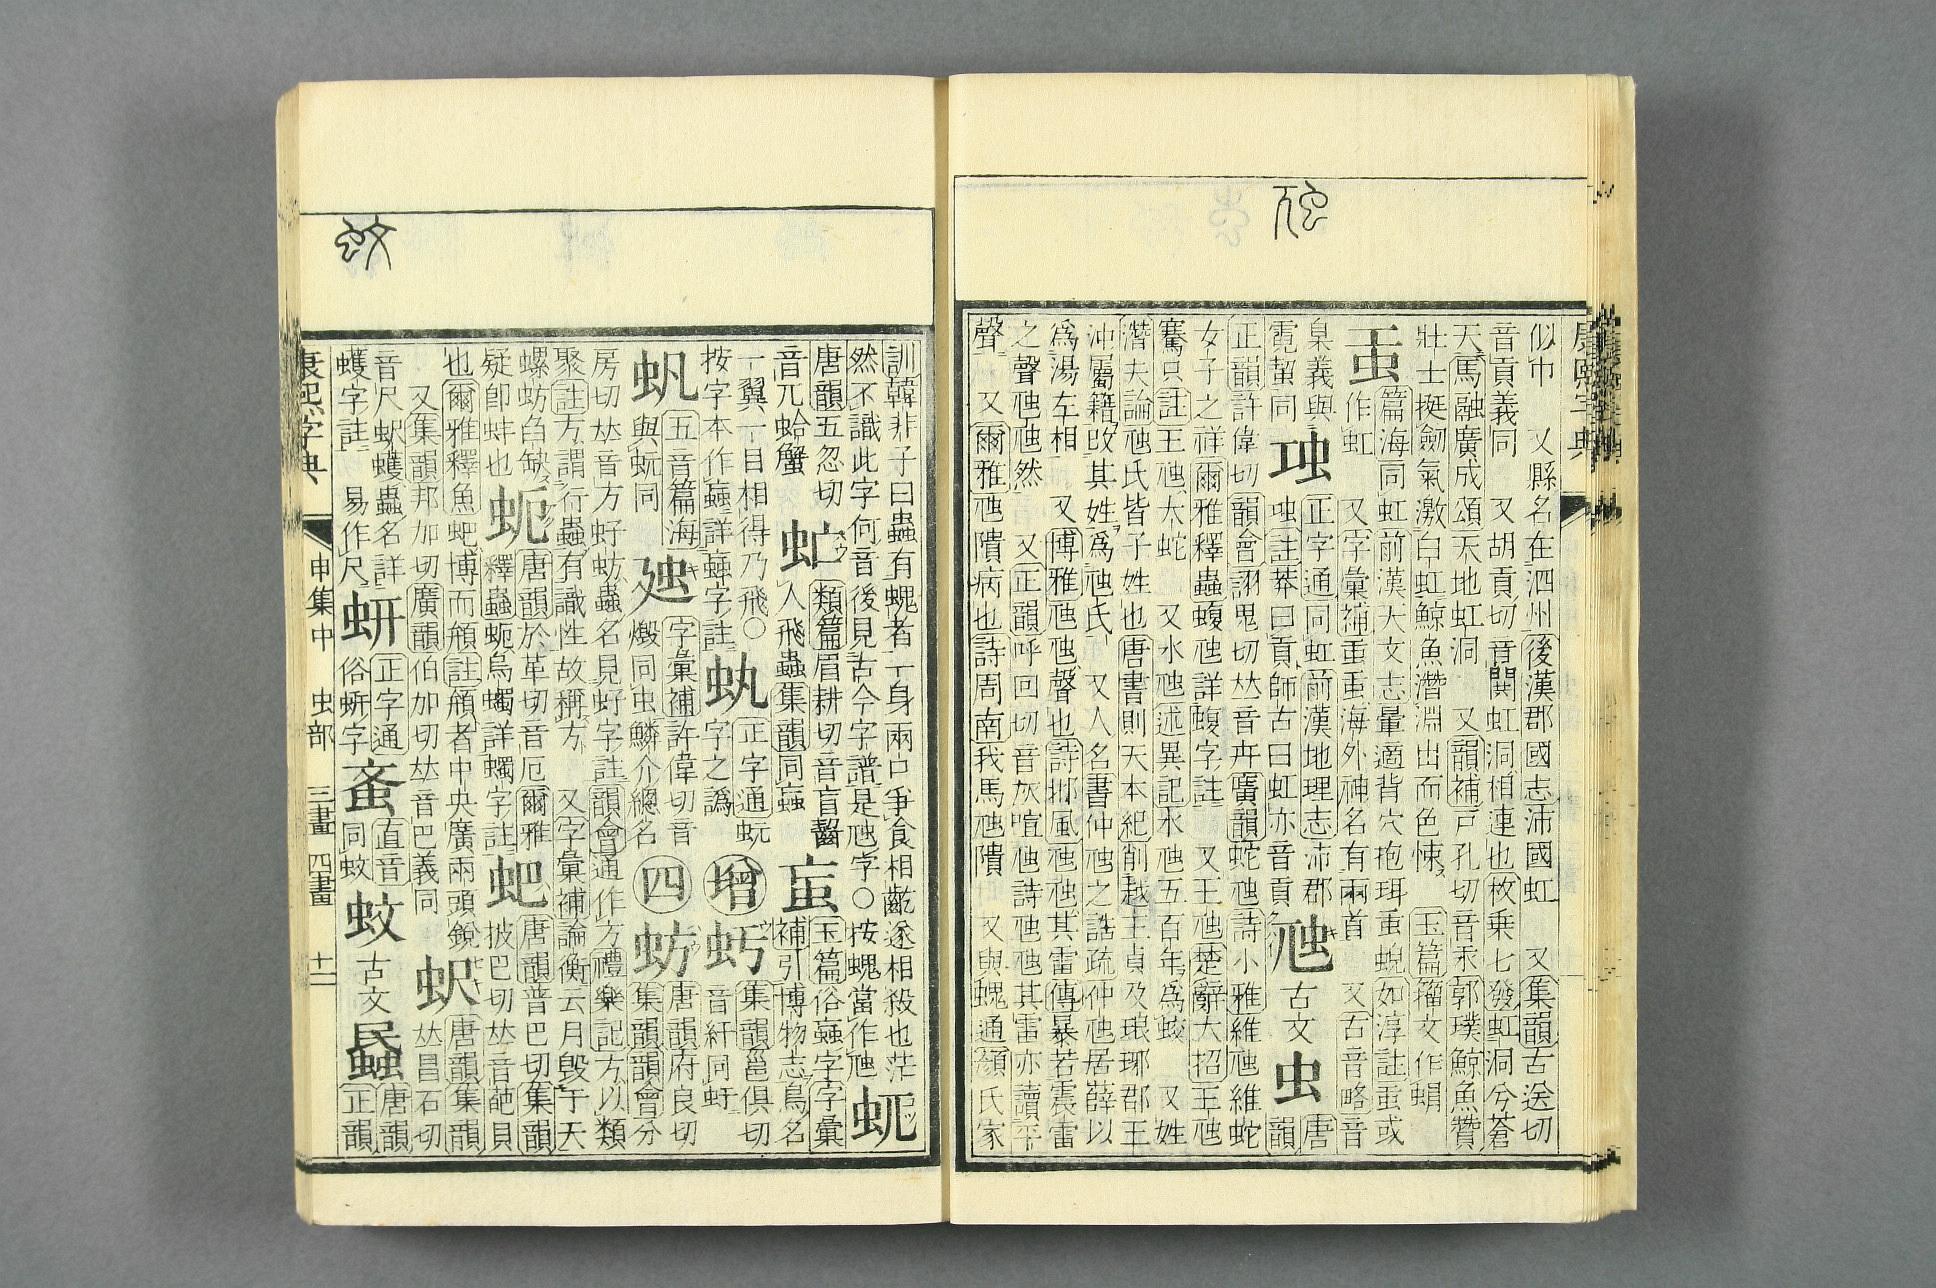 康熙字典
似巾 又縣名在泗州後漢郡國志沛國虹 又集韻古送切
音貢義同 又胡貢切音閧虹洞相連也枚乗七發虹洞兮蒼
天馬融廣成頌天地虹洞 又韻補戸孔切音汞郭璞鯨魚贊
壯士挺劒氣激白虹鯨魚潛淵出而色悚 玉篇籀文作
篇海同虹前漢天文志暈適背穴抱珥蜺如淳註或
作虹 又字彙補海外神名有兩首 又古音略音
臬義與 正字通同虹前漢地理志沛郡 虺 古文 虫 唐
霓同 註莽曰貢師古曰虹亦音貢 韻
正韻許偉切韻會詡鬼切𠀤音卉廣韻蛇虺詩小雅維虺維蛇
女子之祥爾雅釋蟲蝮虺詳蝮字註 又王虺楚辭大招王虺
騫只註王虺大蛇 又水虺述異記水虺五百年爲蛟 又姓
潛夫論虺氏皆子姓也唐書則天本紀削越王貞及琅琊郡王
沖屬籍改其姓爲虺氏 又人名書仲虺之誥疏仲虺居薛以
爲湯左相 又博雅虺虺聲也詩邶風虺虺其雷傳暴若震雷
之聲虺虺然 又正韻呼回切音灰喧虺詩虺虺其雷亦讀平
聲 又爾雅虺隤病也詩周南我馬虺隤 又與螝通顏氏家
訓韓非子曰蟲有螝者一身兩口爭食相齕遂相殺也茫
然不識此字何音後見古今字譜是虺字〇按螝當作虺
唐韻五忽切 類篇眉耕切音盲齧 玉篇俗蝱字字彙
音兀蛤蟹 虻 人飛蟲集韻同蝱 補引博物志鳥名
一翼一目相得乃飛〇 正字通蚖 增 集韻邕俱切
按字本作蝱詳蝱字註 字之譌 音紆同
五音篇海 字彙補許偉切音 四 蚄 唐韻府良切
與蚖同 燬同虫鱗介總名 集韻韻會分
房切𠀤音方虸蚄蟲名見虸字註韻會通作方禮樂記方以類
聚註方謂行蟲有識性故稱方 又字彙補論衡云月毀于天
螺蚄舀缺 蚅 唐韻於革切音厄爾雅 蚆 唐韻普巴切集韻
疑卽蚌也 釋蟲蚅烏蠋詳蠋字註 披巴切𠀤音葩貝
也爾雅釋魚蚆博而頯註頯者中央廣兩頭銳 蚇 唐韻集韻
又集韻邦加切廣韻伯加切𠀤音巴義同 𠀤昌石切
音尺蚇蠖蟲名詳 蚈 正字通 蚉 直音 蚊 蟁 唐韻
蠖字註 易作尺 俗蚈字 同蚊 古文 正韻
康熙字典 申集中 虫部 三畫 四畫 十一